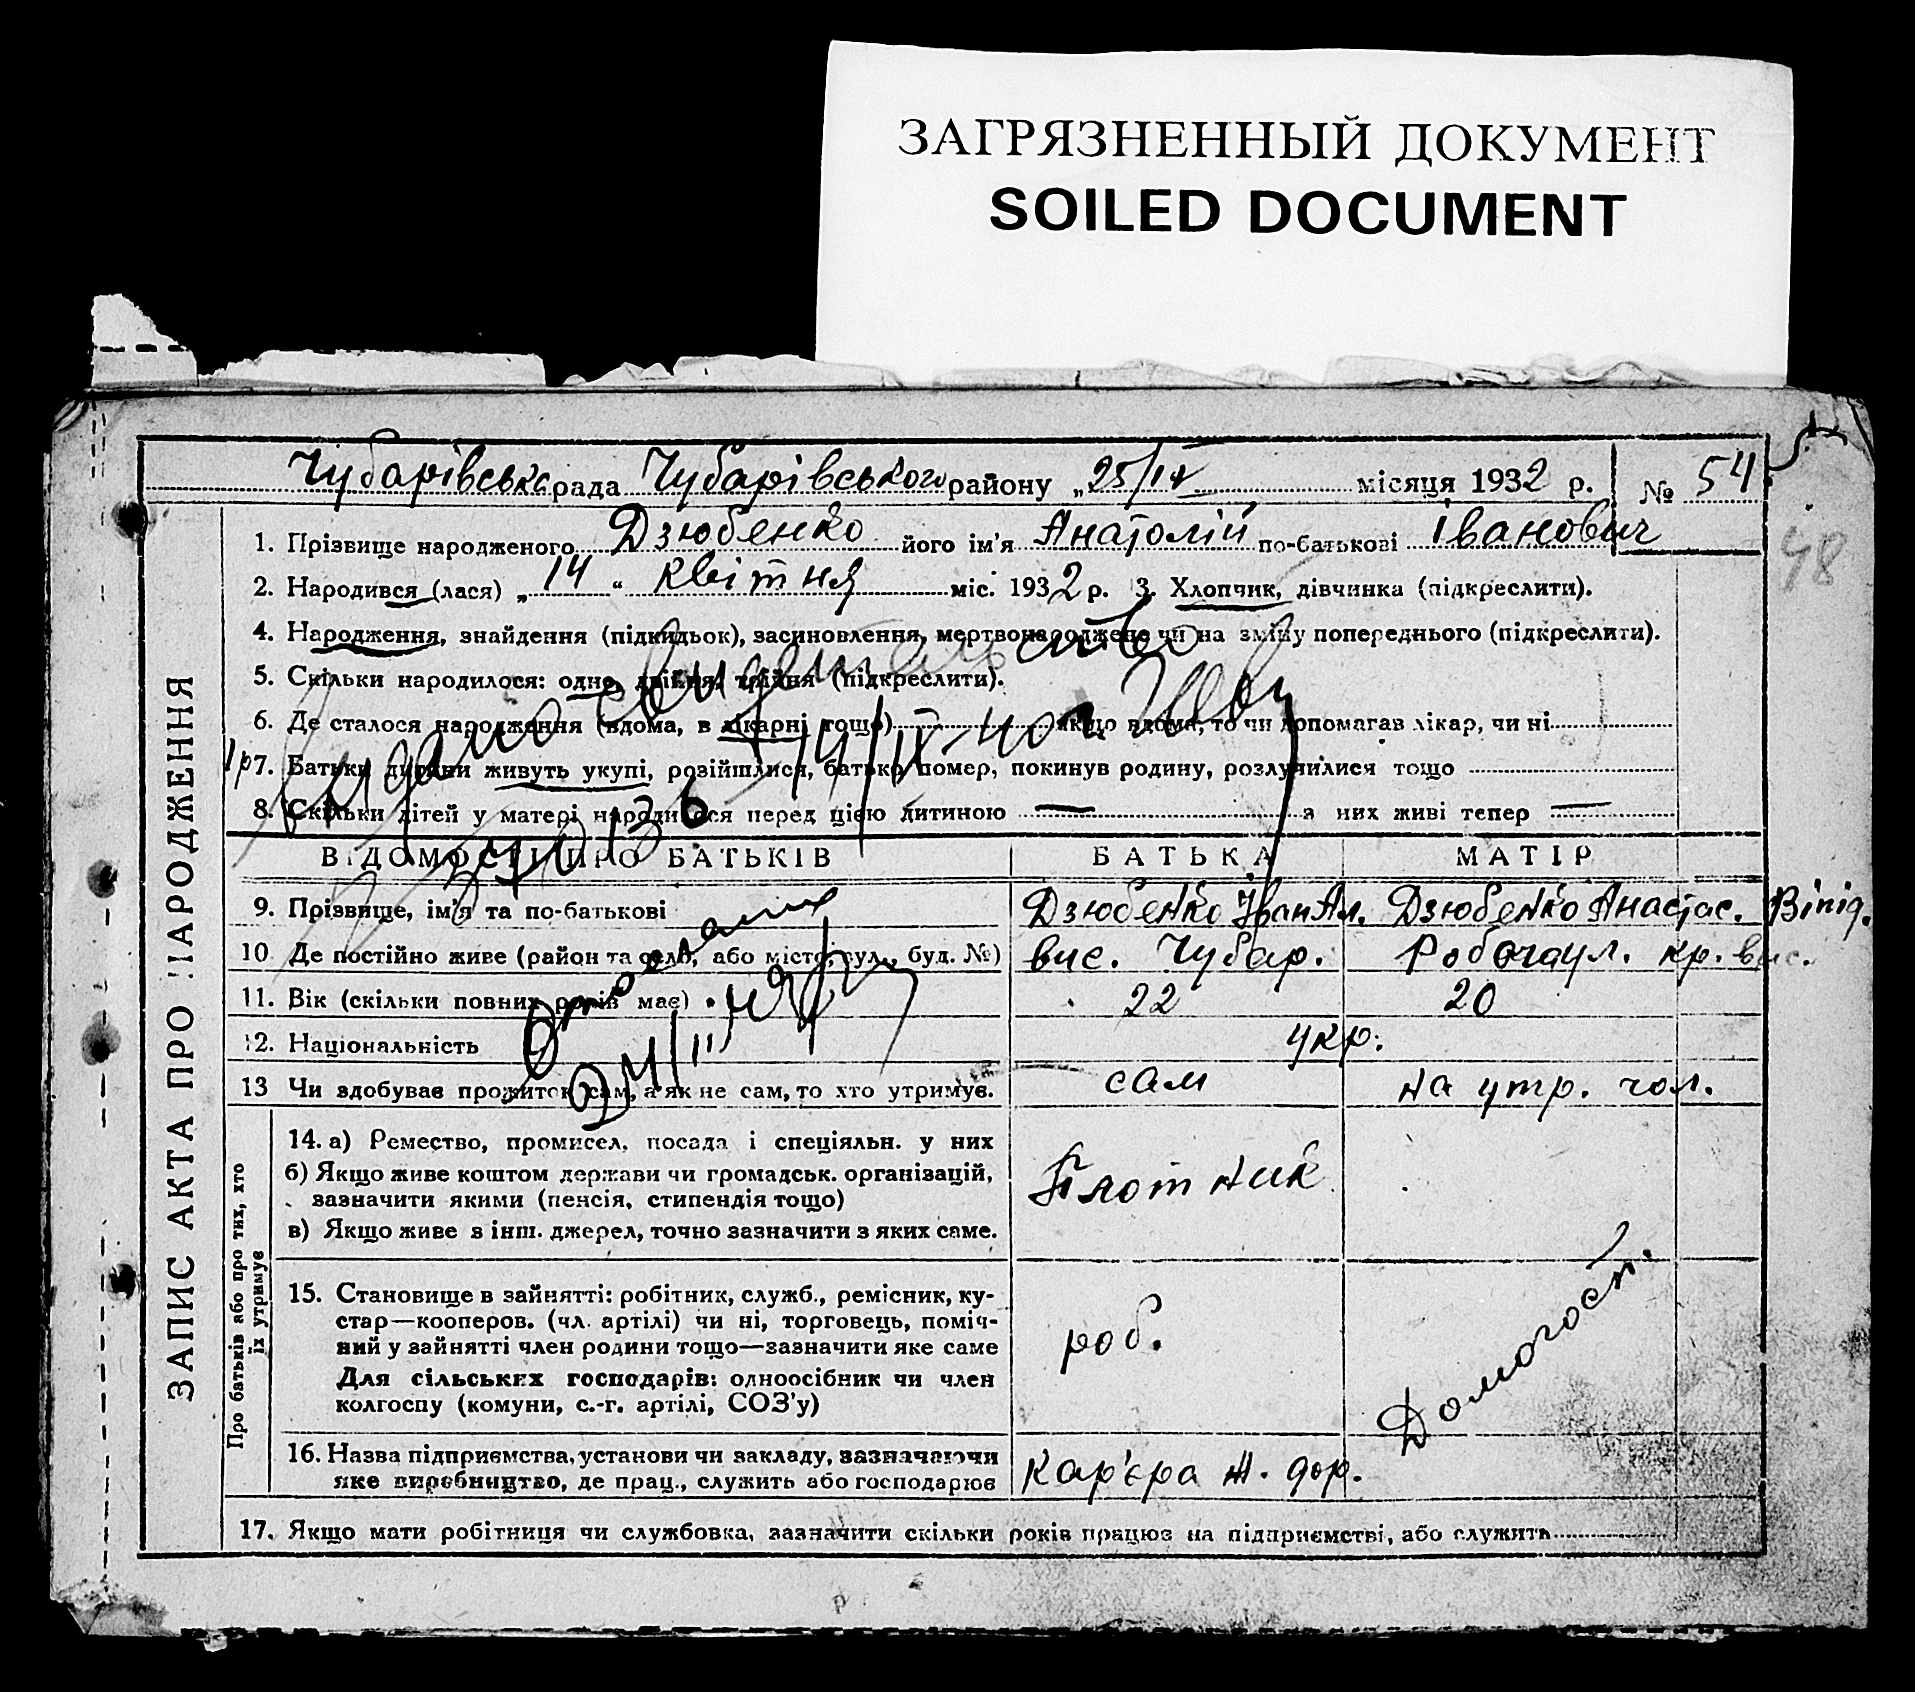 ЗАГРЯЗНЕННЫЙ ДОКУМЕНТ
SOILED DOCUMENT
Чубарівська рада Чубарівського району „25/IV місяця 1932 р. № 54
48
1. Прізвище народженого Дзюбенко його ім'я Анатолій по-батькові Іванович
2. Народився (лася) „14“ квітня міс. 1932 р. 3. Хлопчик, дівчинка (підкреслити).
4. Народження, знайдення (підкидьок), засиновлення, мертвонароджене чи на зміну попереднього (підкреслити).
5. Скільки народилося: одно, двійня, трійня (підкреслити).
6. Де сталося народження (вдома, в лікарні тощо) якщо вдома, то чи допомагав лікар, чи ні
7. Батьки дитини живуть укупі, розійшлися, батько помер, покинув родину, розлучилися тощо
8. Скільки дітей у матері народилося перед цією дитиною — з них живі тепер —
ВІДОМОСТІ ПРО БАТЬКІВ БАТЬКА МАТІР
9. Прізвище, ім'я та по-батькові Дзюбенко Іван Ал. Дзюбенко Анастас.
10 Де постійно живе (район та село, або місто, вул., буд. №) вис. Чубар. Робоча ул. кр. вис.
11. Вік (скільки повних років має) 22 20
12. Національність укр.
13 Чи здобуває прожиток сам, а як не сам, то хто утримує. сам на утр. чол.
14. а) Ремество, промисел, посада і спеціяльн. у них Плотник
б) Якщо живе коштом держави чи громадськ. організацій,
зазначити якими (пенсія, стипендія тощо)
в) Якщо живе з інш. джерел, точно зазначити з яких саме.
15. Становище в зайнятті: робітник, служб., ремісник, ку-
стар—кооперов. (чл. артілі) чи ні, торговець, поміч-
ний у зайнятті член родини тощо—зазначити яке саме
Для сільських господарів: одноосібник чи член
колгоспу (комуни, с.-г. артілі, СОЗ'у)
роб.
Домогосп.
16. Назва підприємства, установи чи закладу, зазначаючи
яке виробництво, де прац., служить або господарює
Кар'єра ж. дор.
17. Якщо мати робітниця чи службовка, зазначити скільки років працює на підприємстві, або служить
ЗАПИС АКТА ПРО НАРОДЖЕННЯ
Про батьків або про тих, хто
їх утримує